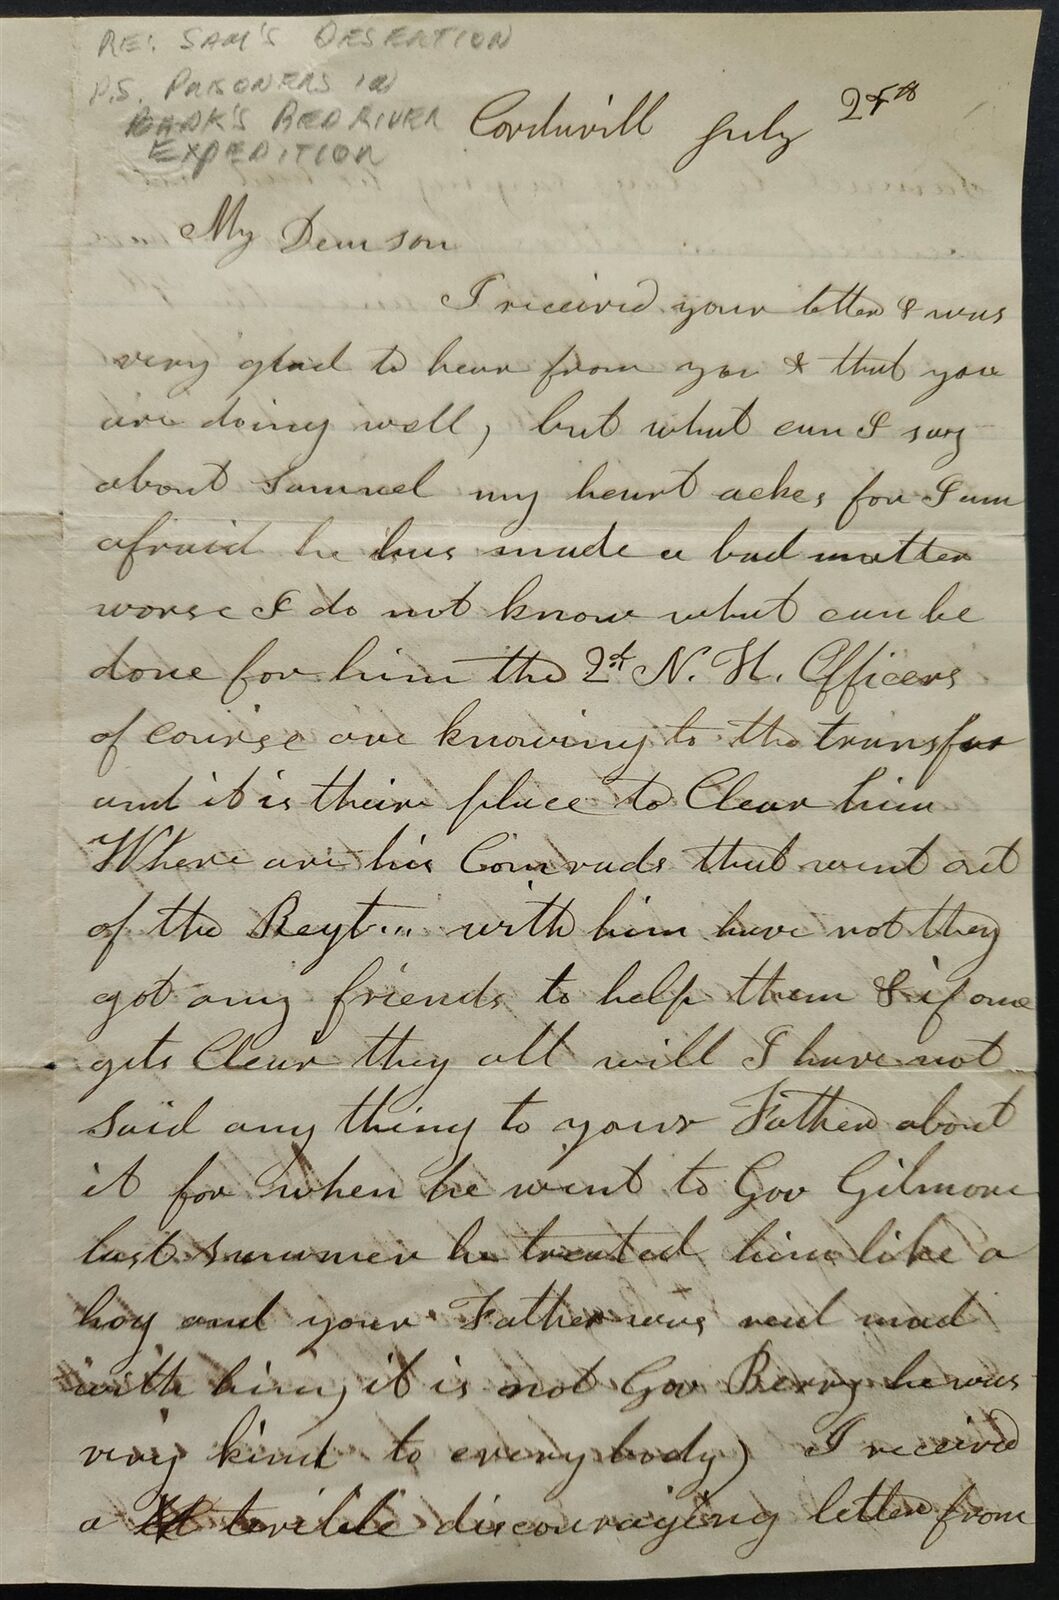 RE: SAM'S DESERTION
P.S. PRISONERS IN
BANK'S RED RIVER
EXPEDITION
Corduvill July 2
My Dear son
I received your letter & was
very glad to hear from you & that you
are doing well, but what can I say
about Samuel my heart aches for I am
afraid he has made a bad matter
worse I do not know what can be
done for him the 2d N. H. Officers
of course are knowing to the transfer
and it is theire place to Clear him
Where are his Comrads that went out
of the Regt... with him have not they
got any friends to help them & if one
gets Clear they all will I have not
said any thing to your Father about
it for when he went to Gov Gilmore
last summer he treated him like a
hog and your Father was real mad
with him, it is not Gov Berry he was
very kind to everybody) I received
a terible discouraging letter from